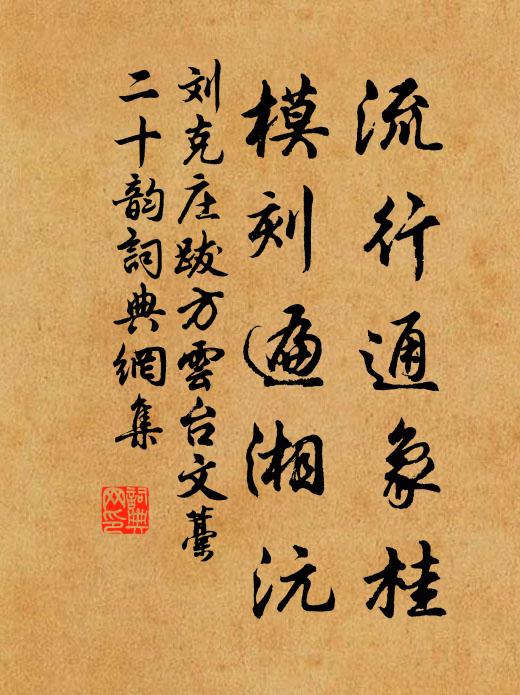 流行通象桂
模刻遍湘沅
刘克庄跋方雲台文藁
二十韵詞典網集
詞典网印